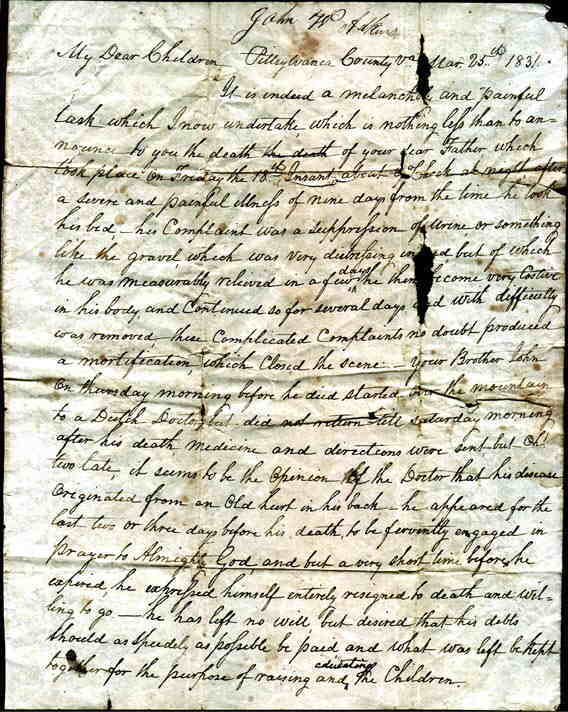 John W Adkins
My Dear Children Pittsylvanea County va Mar. 25th 1831.
It is indeed a melancholy and painful
task which I now undertake which is nothing less than to an=
nounce to you the death the death of your dear Father which
took place on Friday the 18th Insant, about o Clock at night after
a severe and painful illness of nine days from the time he took
his bed, his Complaint was a Suppression of Urine or something
like the gravel which was very distressing indeed but of which
he was measurably relieved in a few days he then become very Costive
in his body and Continued so for several days and with difficulty
was removed these Complicated Complaints no doubt produced
a mortification, which Closed the scene — your Brother John
On thursday morning before he died started over the mountain
to a Dutch Doctor but did not return till saturday morning
after his death medicine and derections were sent but Oh!
two late, it seems to be the Opinion of the Doctor that his disease
Origenated from an Old hurt in his back — he appeared for the
last two or three days before his death to be ferventtly engaged in
prayer to Almighty God, and but a very short time before he
expired, he expressed himself enterely resegned to death and wil=
ling to go — he has left no will but desired that his debts
Should as speedely as possible be paid and what was left be kept
together for the purpose of raising and educating the Children.